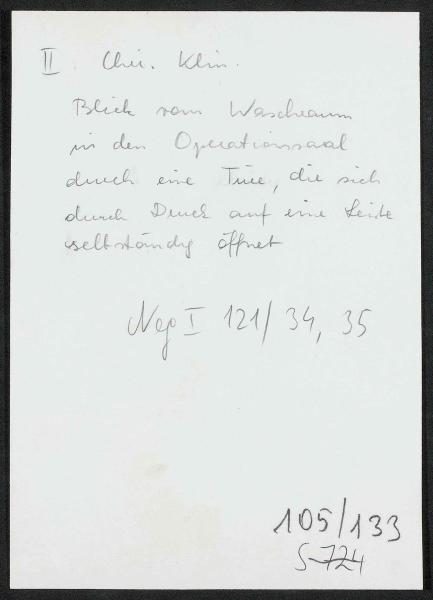 II Chir. Klin.
Blick vom Waschraum
in den Operationssaal
durch eine Türe, die sich
durch Druck auf eine Leiste
selbständig öffnet
Neg I 121/34, 35
105/133
S-724